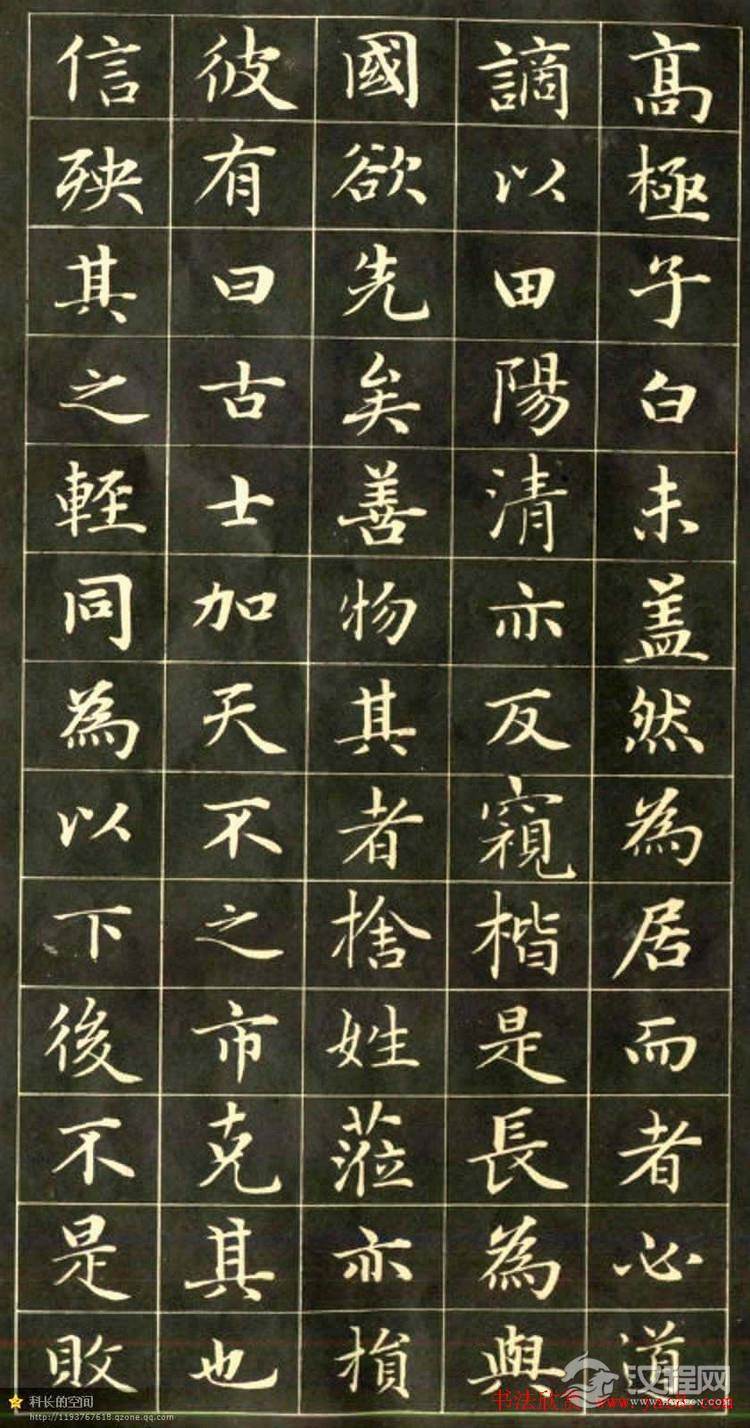 髙極子白未盖然為居而者心道
謫以田陽清亦反窺楷是長為與
國欲先矣善物其者捨姓蒞亦損
彼有曰古士加天不之市克其也
信殃其之輕同為以下後不是敗
科长的空间
http://1193767618.qzone.qq.com
汉程网
书法欣赏